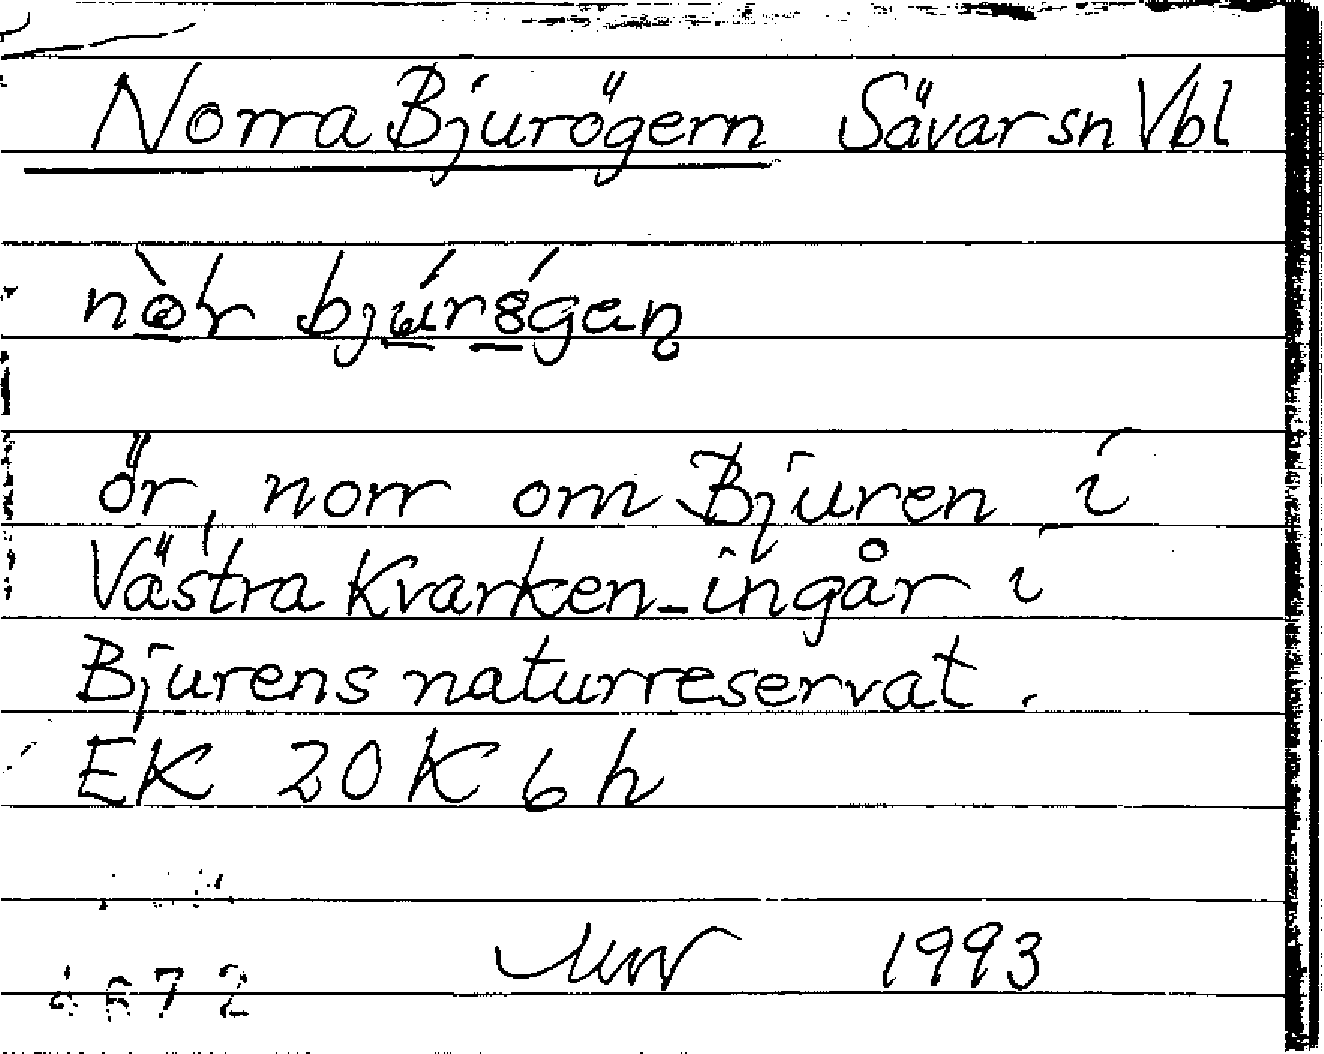 Norra Bjurögern Sävar sn Vbl
ör, norr om Bjuren i
Västra Kvarken - ingår i
Bjurens naturreservat.
EK 20 K 6 h
1993